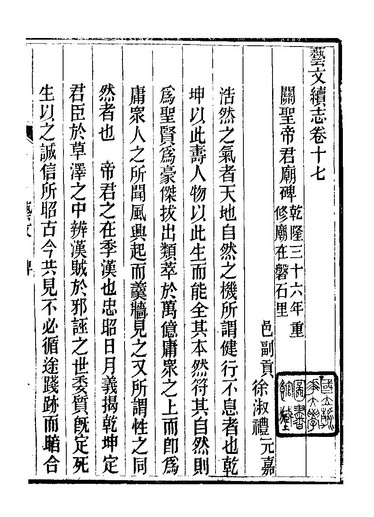 藝文續志卷十七
關聖帝君廟碑 乾隆三十六年重
修廟在磐石里
邑副貢徐淑禮元嘉
浩然之氣者天地自然之機所謂健行不息者也乾
坤以此壽人物以此生而能全其本然符其自然則
爲聖賢爲豪傑拔出類萃於萬億庸衆之上而卽爲
庸衆人之所聞風興起而羹牆見之又所謂性之同
然者也 帝君之在季漢也忠昭日月義揭乾坤定
君臣於草澤之中辨漢賊於邪誣之世委質旣定死
生以之誠信所昭古今共見不必循途踐跡而暗合